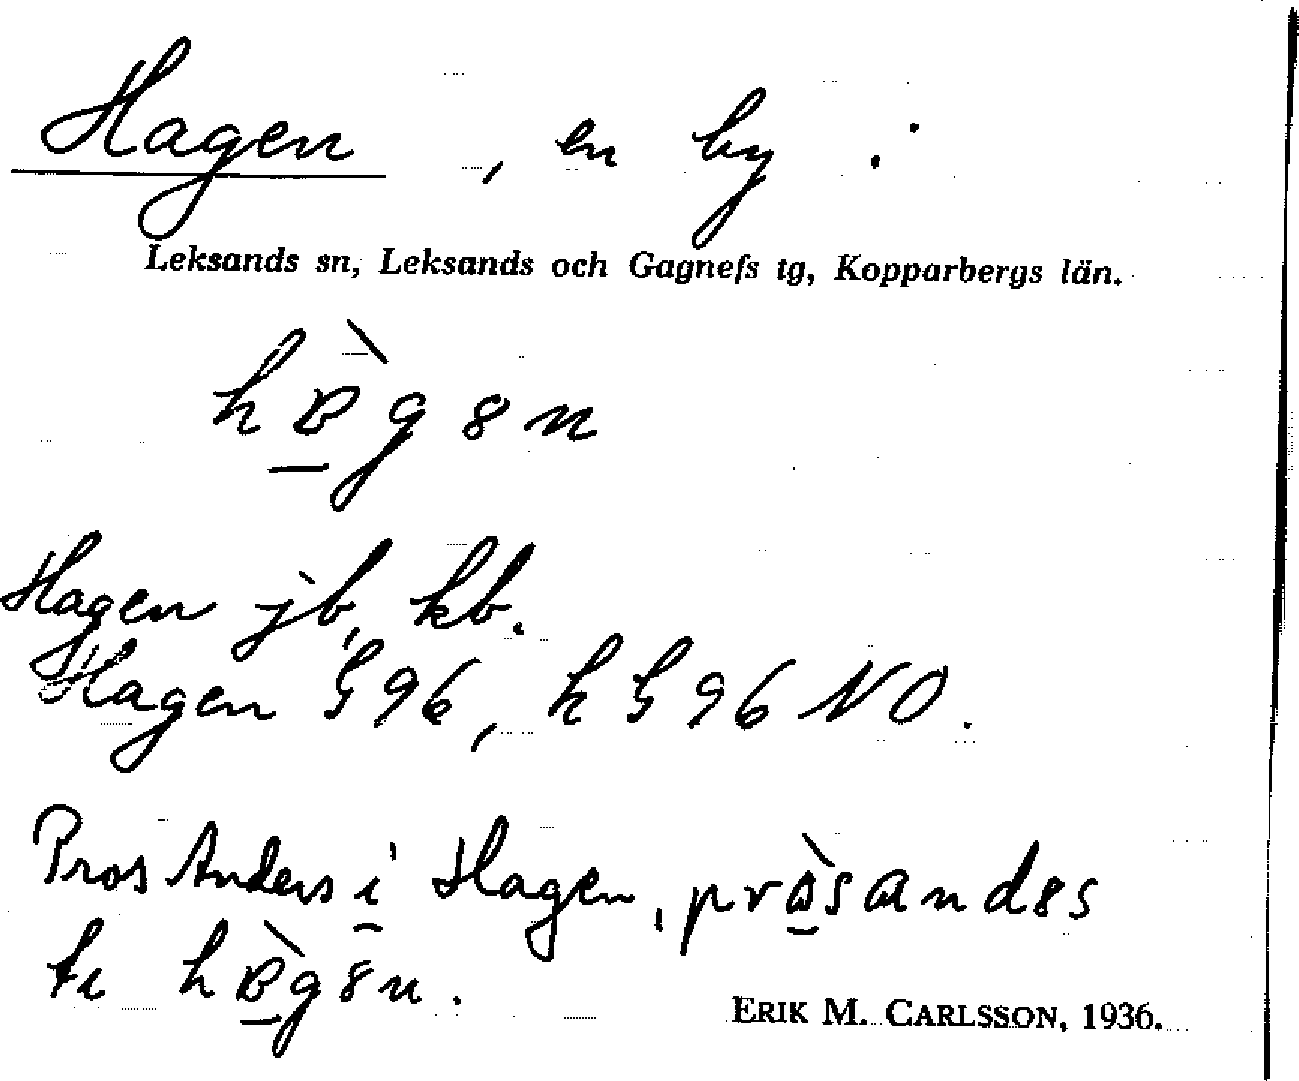 Hagen, en by.
Leksands sn, Leksands och Gagnefs tg, Kopparbergs län.
Hagen jb, kb.
Hagen § 96, k § 96 NO.
Pros Anders i Hagen,
ERIK M. CARLSSON, 1936.